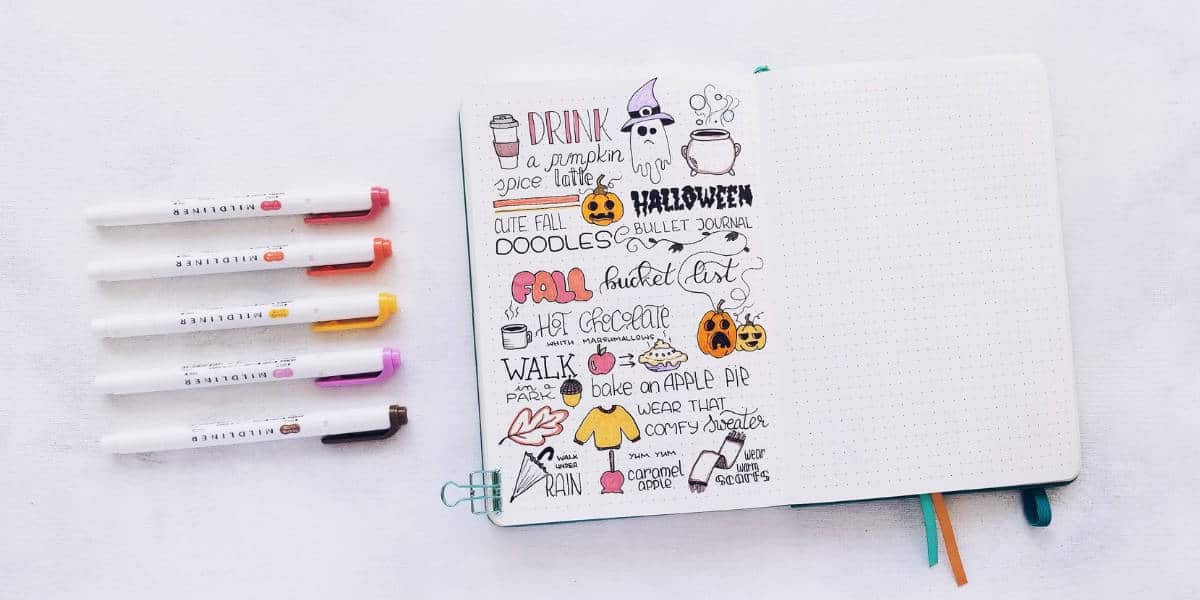 MILDLINER
MILDLINER
MILDLINER
MILDLINER
MILDLINER
DRINK
a pumpkin
spice latte
HALLOWEEN
CUTE FALL
DOODLES
BULLET JOURNAL
FALL bucket list
HOT CHOCOLATE
WHITH MARSHMALLOWS
WALK
in a
PARK
bake an APPLE PIE
WEAR THAT
COMFY Sweater
WALK
UNDER
RAIN
YUM YUM
caramel
apple
wear
warm
scarfs